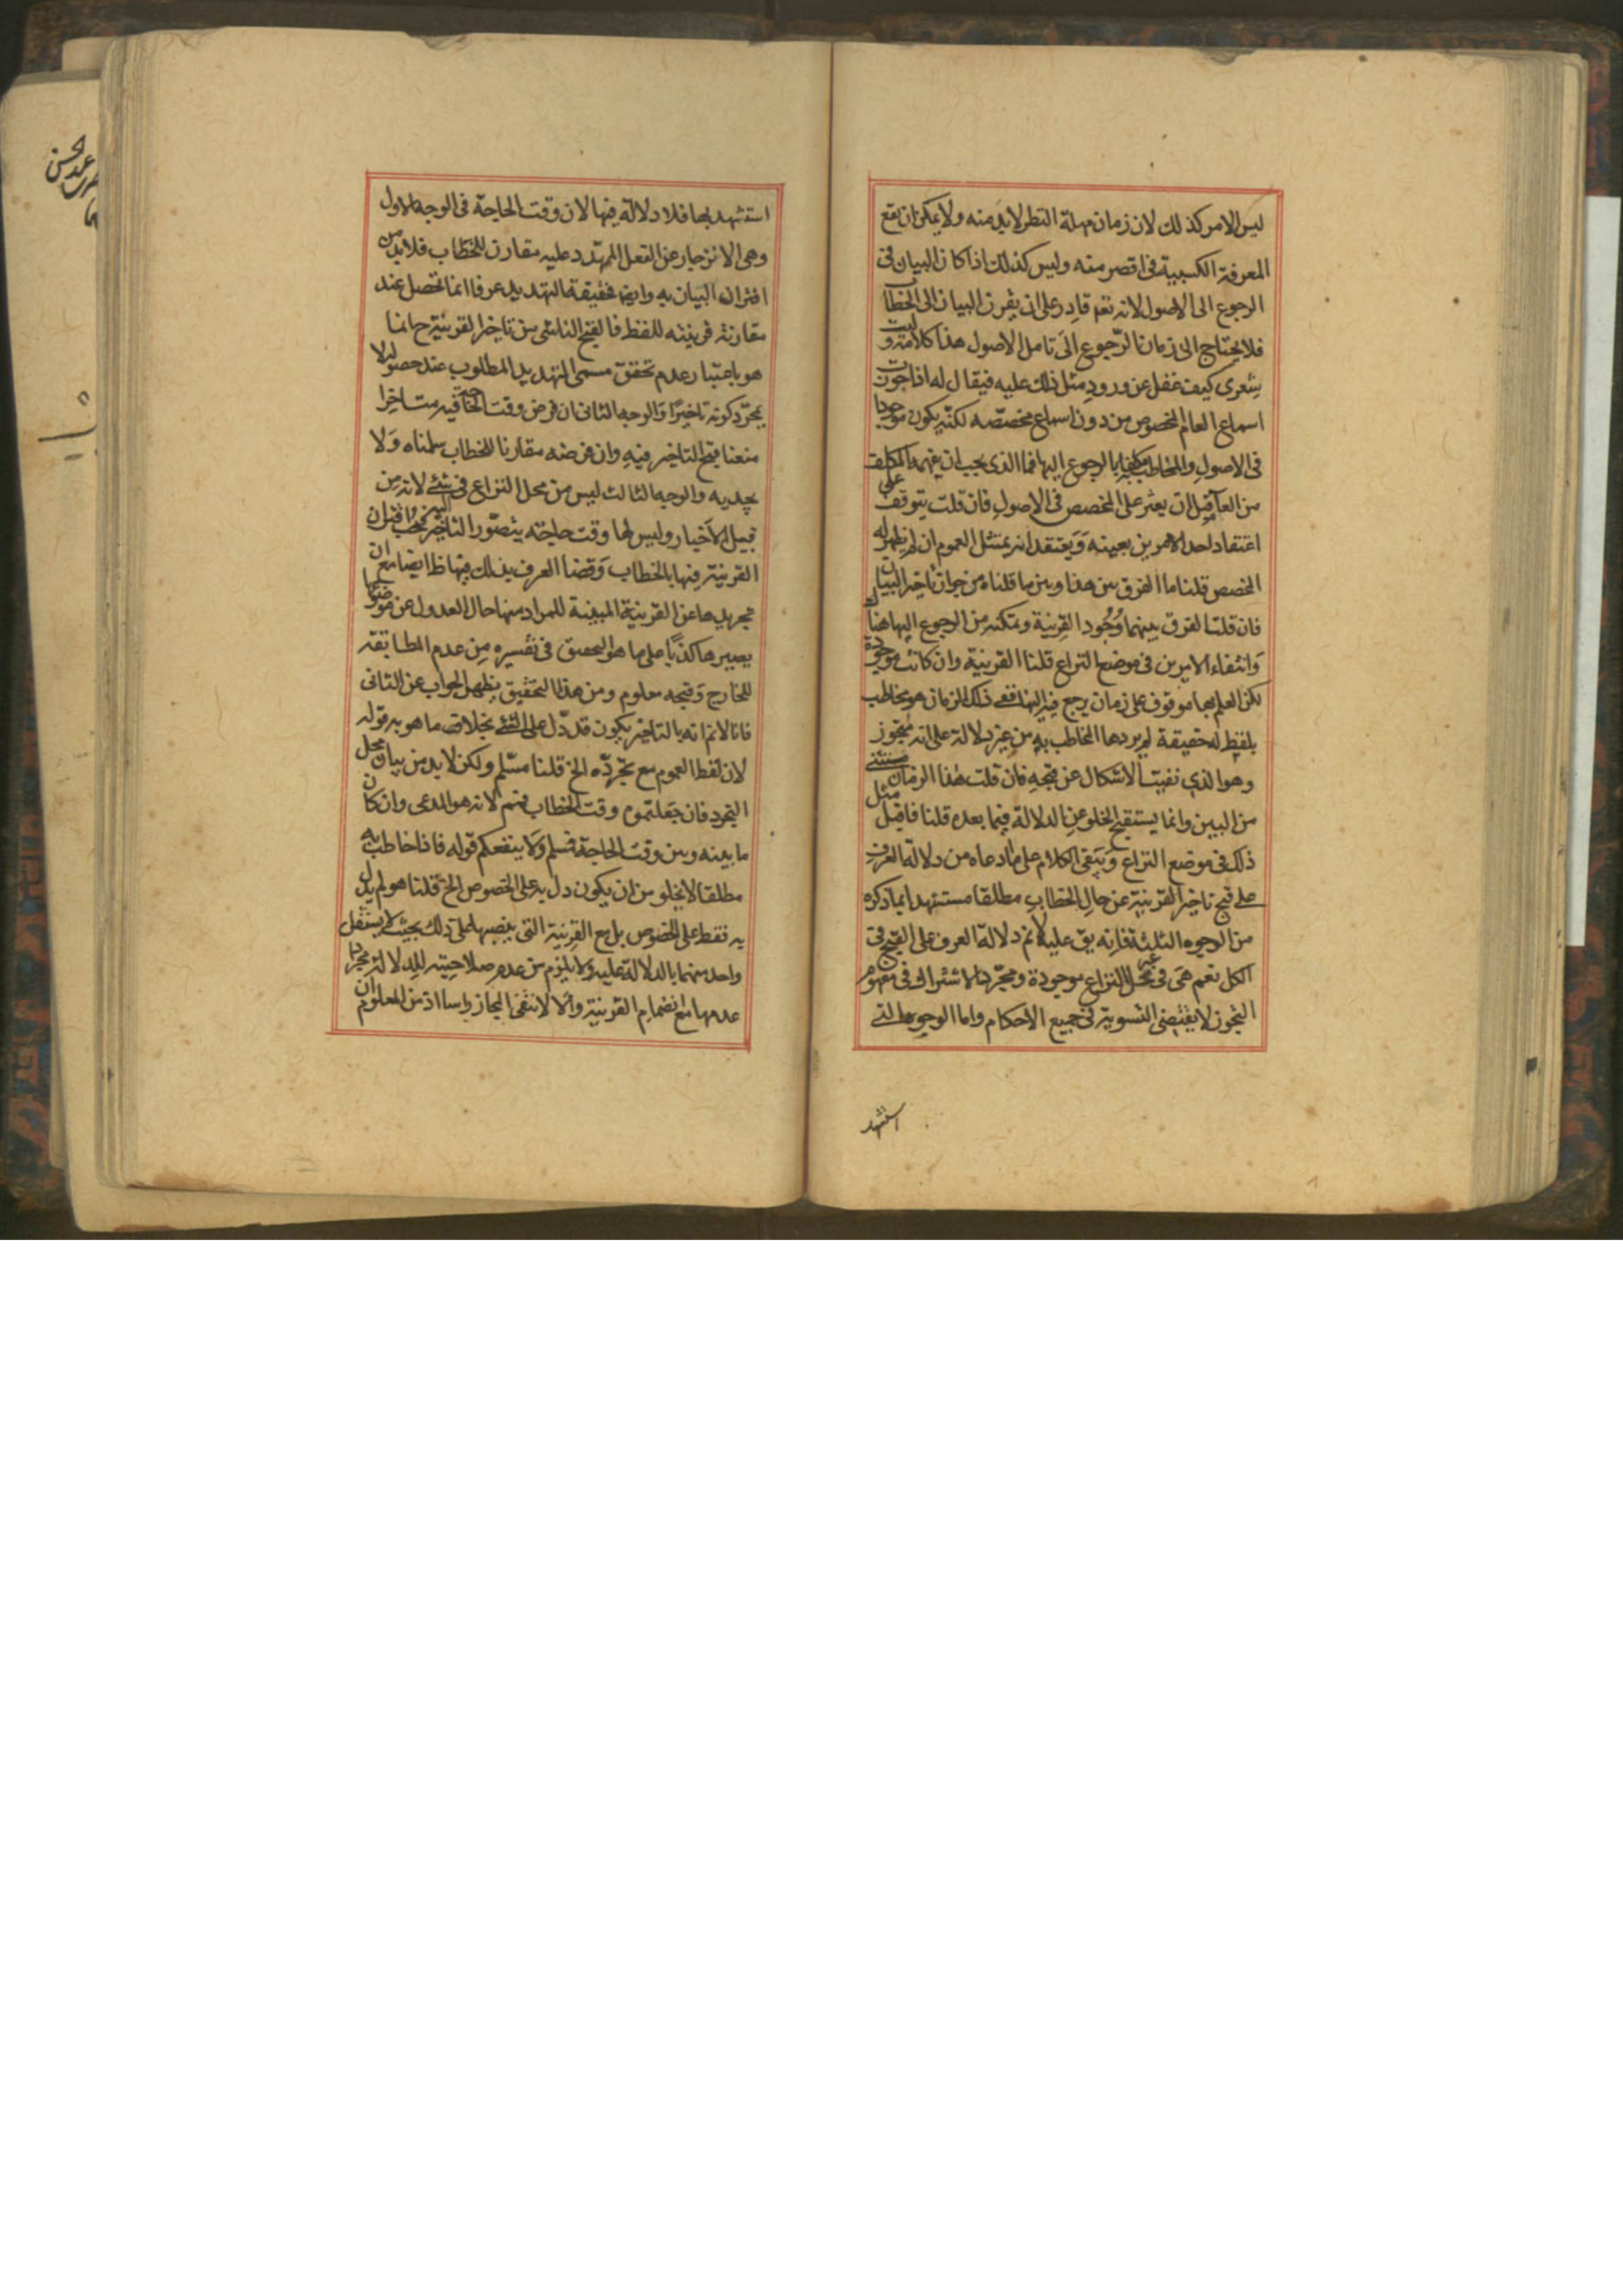 ليس الامر كذلك لان زمان مهلة النظر لابد منه ولا يمكن ان يقع
المعرفة الكسبية فى اقصر منه وليس كذلك اذا كان البيان فى
الرجوع الى الاصول لانه تعم قادر على ان يقرن البيان الى الخطاب
فلا يحتاج الى زمان الرجوع الى تامل الاصول هذا كلامه وليت
شعرى كيف غفل عن ورود مثل ذلك عليه فيقال له اذا جوزت
اسماع العام المخصوص من دون اسماع مخصصه لكنه يكون موجودا
فى الاصول والمخاطب مكلف بالرجوع اليها فما الذى يجب ان يفهمه المكلف
من العام قبل ان يعثر على المخصص فى الاصول فان قلت يتوقف على
اعتقاد احد الامرين بعينه ويعتقد انه يمتثل العموم ان لم يظهر له
المخصص قلنا ما الفرق بين هذا وبين ما قلناه من جواز تاخير البيان
فان قلت الفرق بينهما وجود القرينة وتمكنه من الرجوع اليها هناك
وانتفاء الامرين فى موضع النزاع قلنا القرينة وان كانت موجودة
لكن العلم بها موقوف على زمان يرجع فيه اليها ففى ذلك الزمان هو مخاطب
بلفظ له حقيقة لم يردها المخاطب به من غير دلالة على انه متجوز
وهو الذى نفيت الاشكال عن قبحه فان قلت هذا الزمان مستثنى
من البين وانما يستقبح الخلو عن الدلالة فيما بعده قلنا فاقبل مثل
ذلك فى موضع النزاع ويبقى الكلام على ما ادعاه من دلالة العرف
على قبح تاخير القرينة عن حال الخطاب مطلقا مستشهدا بما ذكره
من الوجوه الثلثة فانه يق عليه لانم دلالة العرف على القبح فى
الكل نعم هى فى غير محل النزاع موجودة ومجرد الاشتراك فى مفهوم
التجوز لا يقتضى التسوية فى جميع الاحكام واما الوجوه التى
استشهد
استشهد بها فلا دلالة فيها لان وقت الحاجة فى الوجه الاول
وهى الانزجار عن الفعل المهدد عليه مقارن للخطاب فلابد من
اقتران البيان به وايضا فحقيقة التهديد عرفا انما تحصل عند
مقارنة قرينته للفظ فالقبح الناشى من تاخير القرينة ح انما
هو باعتبار عدم تحقق مسمى التهديد المطلوب عند حصوله لا
بمجرد كونه تاخيرا والوجه الثانى ان فرض وقت الحاجة فيه متاخرا
منعنا قبح التاخير فيه وان فرضه مقارنا للخطاب سلمناه ولا
يجديه والوجه الثالث ليس من محل النزاع فى شئ لانه من
قبيل الاخبار وليس لها وقت حاجة يتصور التاخير اليه فيجب اقتران
القرينة فيها بالخطاب وقضا العرف بذلك فيها ظ ايضا مع ان
تجريدها عن القرينة المبينة للمراد منها حال العدول عن موضوعها
يصيرها كذبا على ما هو التحقيق فى تفسيره من عدم المطابقة
للخارج وقبحه معلوم ومن هذا التحقيق يظهر الجواب عن الثانى
فانا لانم انه بالتاخير يكون قد دل على الشئ بخلاف ما هو به قوله
لان لفظ العموم مع تجرده الخ قلنا مسلم ولكن لابد من بيان محل
التجرد فان جعلتموه وقت الخطاب فمنم لانه هو المدعى وان كان
ما بينه وبين وقت الحاجة فمسلم ولا ينفعكم قوله فاذا خاطب به
مطلقا لا يخلو من ان يكون دل به على الخصوص الخ قلنا هو لم يدل
به فقط على الخصوص بل مع القرينة التى ينصبها على ذلك بحيث لا يستقل
واحد منهما بالدلالة عليه ولا يلزم من عدم صلاحيته للدلالة مجردا
عدمها مع انضمام القرينة والا لانتفى المجاز راسا اذ من المعلوم ان